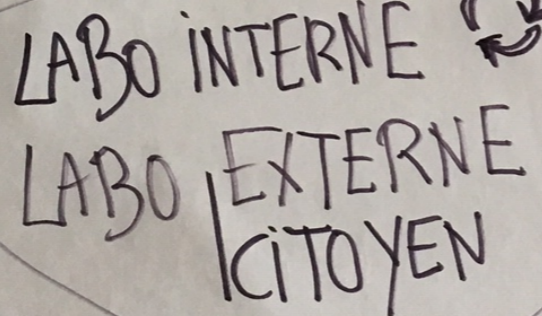 LABO iNTERNE
LABO EXTERNE
CiTOYEN